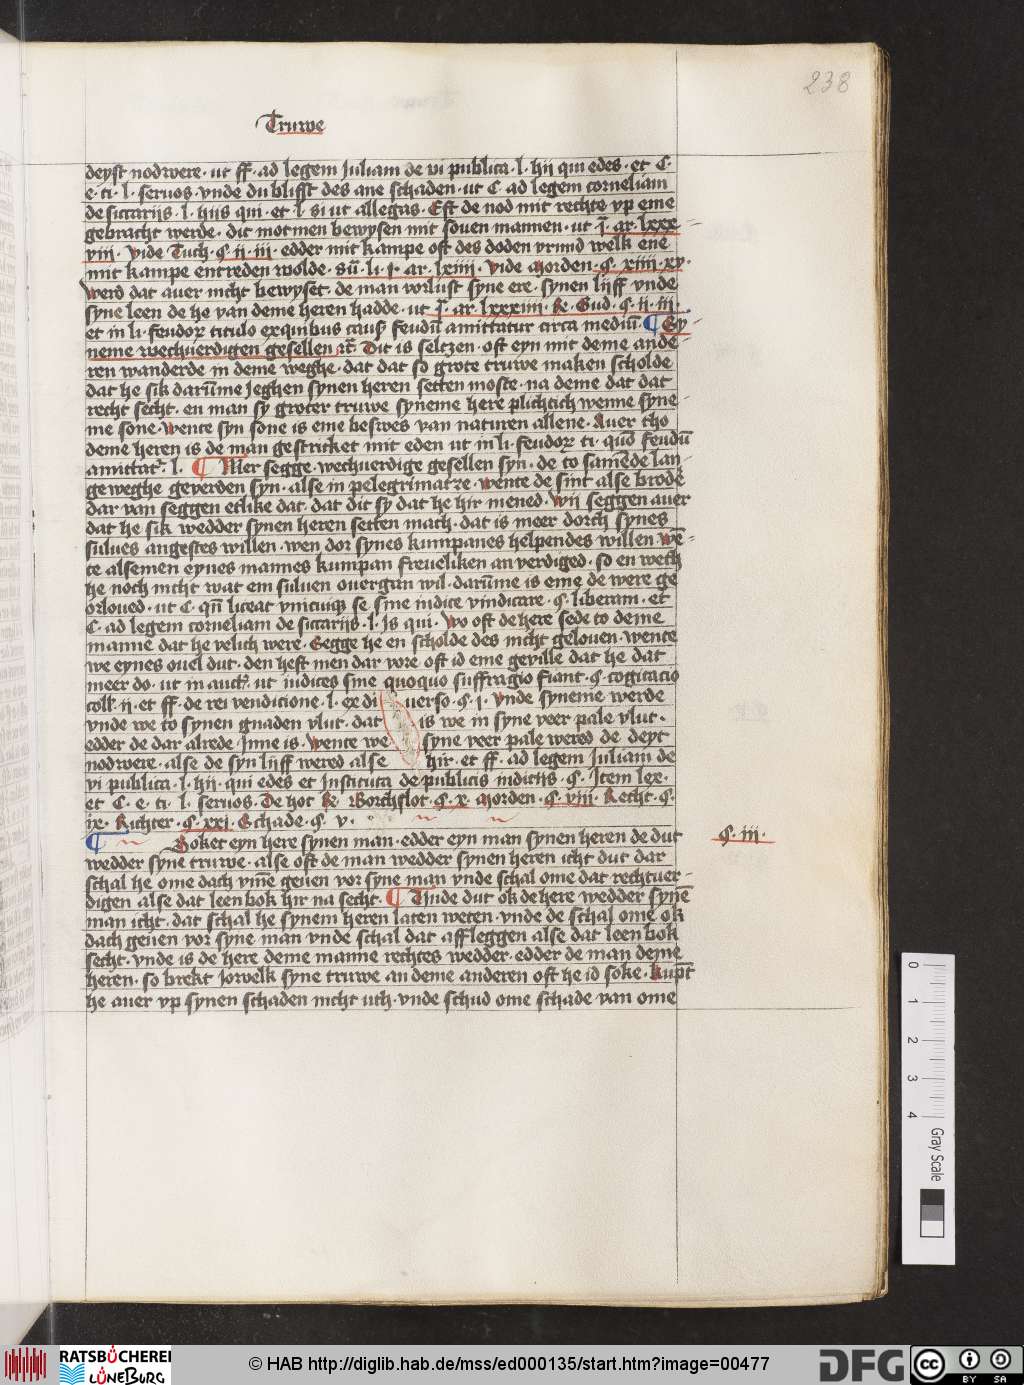 238
Truwe
deyst nodwere · ut ff · ad legem Juliam de vi publica · l · hij qui edes · et C ·
e · ti · l · seruos · vnde du bliffst des ane schaden · ut C · ad legem corneliam
de siccarijs · l · hijs qui · et l · si ut allegas · Est de nod mit rechte vp eme
gebracht werde · dit mot men bewysen mit souen mannen · ut j · ar · lxxx-
viii · Vide Tuch · § · ii · iii · edder mit kampe oft des doden vrund welk ene
mit kampe entreden wolde · sū · li · j · ar · lxiiii · Vide Morden · § · xiiii · xv ·
Werd dat auer nicht bewyset · de man vorlust syne ere · synen lijff vnde
syne leen de he van deme heren hadde · ut j · ar · lxxxiiii · &c · Gud · § · ii · iii ·
et in li · feudoꝝ titulo exquibus caus feudū amittatur circa mediū · ¶ Sy-
neme wechuerdigen gesellen ꝛc̄ · Dit is seltzen · oft eyn mit deme ande-
ren wanderde in deme weghe · dat dat so grote truwe maken scholde
dat he sik darūme Jeghen synen heren setten moste · na deme dat dat
recht secht · en man sy groter truwe syneme here plichtich wenne syne-
me sone · Wente syn sone is eme beswes van naturen allene · Auer tho
deme heren is de man gestricket mit eden ut in li · feudoꝝ ti · quō feudū
amittat · l · ¶ Mer segge · wechuerdige gesellen syn · de to samēde lan-
ge weghe geverden syn · alse in pelegrimatze · wente de sint alse brodē
dar van seggen etlike dat · dat dit sy dat he hir mened · Wij seggen auer
dat he sik wedder synen heren setten mach · dat is meer dorch synes
sulues angestes willen · wen dor synes kumpanes helpendes willen · Wē-
te alsemen eynes mannes kumpan freueliken an verdiged · so en weth
he noch nicht wat em suluen ouergan wil · darūme is eme de were ge
orloued · ut C · qn̄ liceat vnicuiqꝫ se sine iudice vindicare · § · liberam · et
C · ad legem corneliam de siccarijs · l · Js qui · Wo oft de here sede to deme
manne dat he velich were · Segge he en scholde des nicht gelouen · wente
we eynes ouel dut · den heft men dar vore oft id eme geville dat he dat
meer do · ut in auct · ut iudices sine quoquo suffragio fiant · § · cogitacio
coll · ij · et ff · de rei vendicione · l · ex di uerso · § · j · Vnde syneme werde
vnde we to synen gnaden vlut · dat is we in syne veer pale vlut ·
edder de dar alrede Jnne is · Wente we syne veer pale wered de deyt
nodwere · alse de syn lijff wered alse hir · et ff · ad legem Juliam de
vi publica · l · hij · qui edes et Jnstituta de publicis iudicijs · § · Jtem lex ·
et C · e · ti · l · seruos · De hot &c · Borchflot · § · x · Morden · § · viii · Recht · § ·
ix · Richter · § · xxj · Schade · § · v ·
¶ Soket eyn here synen man · edder eyn man synen heren de dut
§ · iii ·
wedder syne truwe · alse oft de man wedder synen heren icht dut dar
schal he ome dach vm̄e geuen vor syne man vnde schal ome dat rechtuer-
digen alse dat leen bok hir na secht · ¶ Thide dut ok de here wedder synē
man icht · dat schal he synem heren laten weten · vnde de schal ome ok
dach geuen vor syne man vnde schal dat affleggen alse dat leen bok
secht · vnde is de here deme manne rechtes wedder · edder de man deme
heren · so brekt Jowelk syne truwe an deme anderen oft he id soke · kupt
he auer vp synen schaden nicht uth · vnde schud ome schade van ome
0 1 2 3 4 Gray Scale
RATSBÜCHEREI LÜNEBURG
© HAB http://diglib.hab.de/mss/ed000135/start.htm?image=00477
DFG
cc BY SA